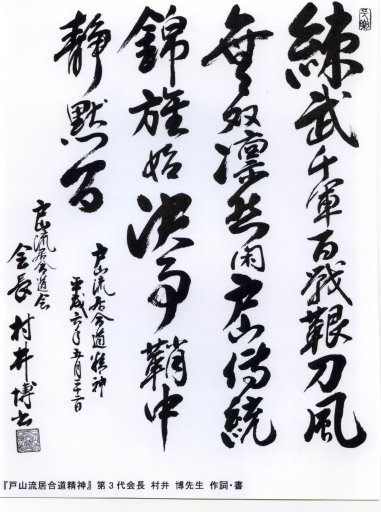 練武千軍百戦刀風
無双凛然戸山傳統
錦旌始決争鞘中
靜黙
戸山流居合道精神
平成六年五月二十二日
戸山流居合道会
会長 村井博書
『戸山流居合道精神』第3代会長 村井 博先生 作詞・書